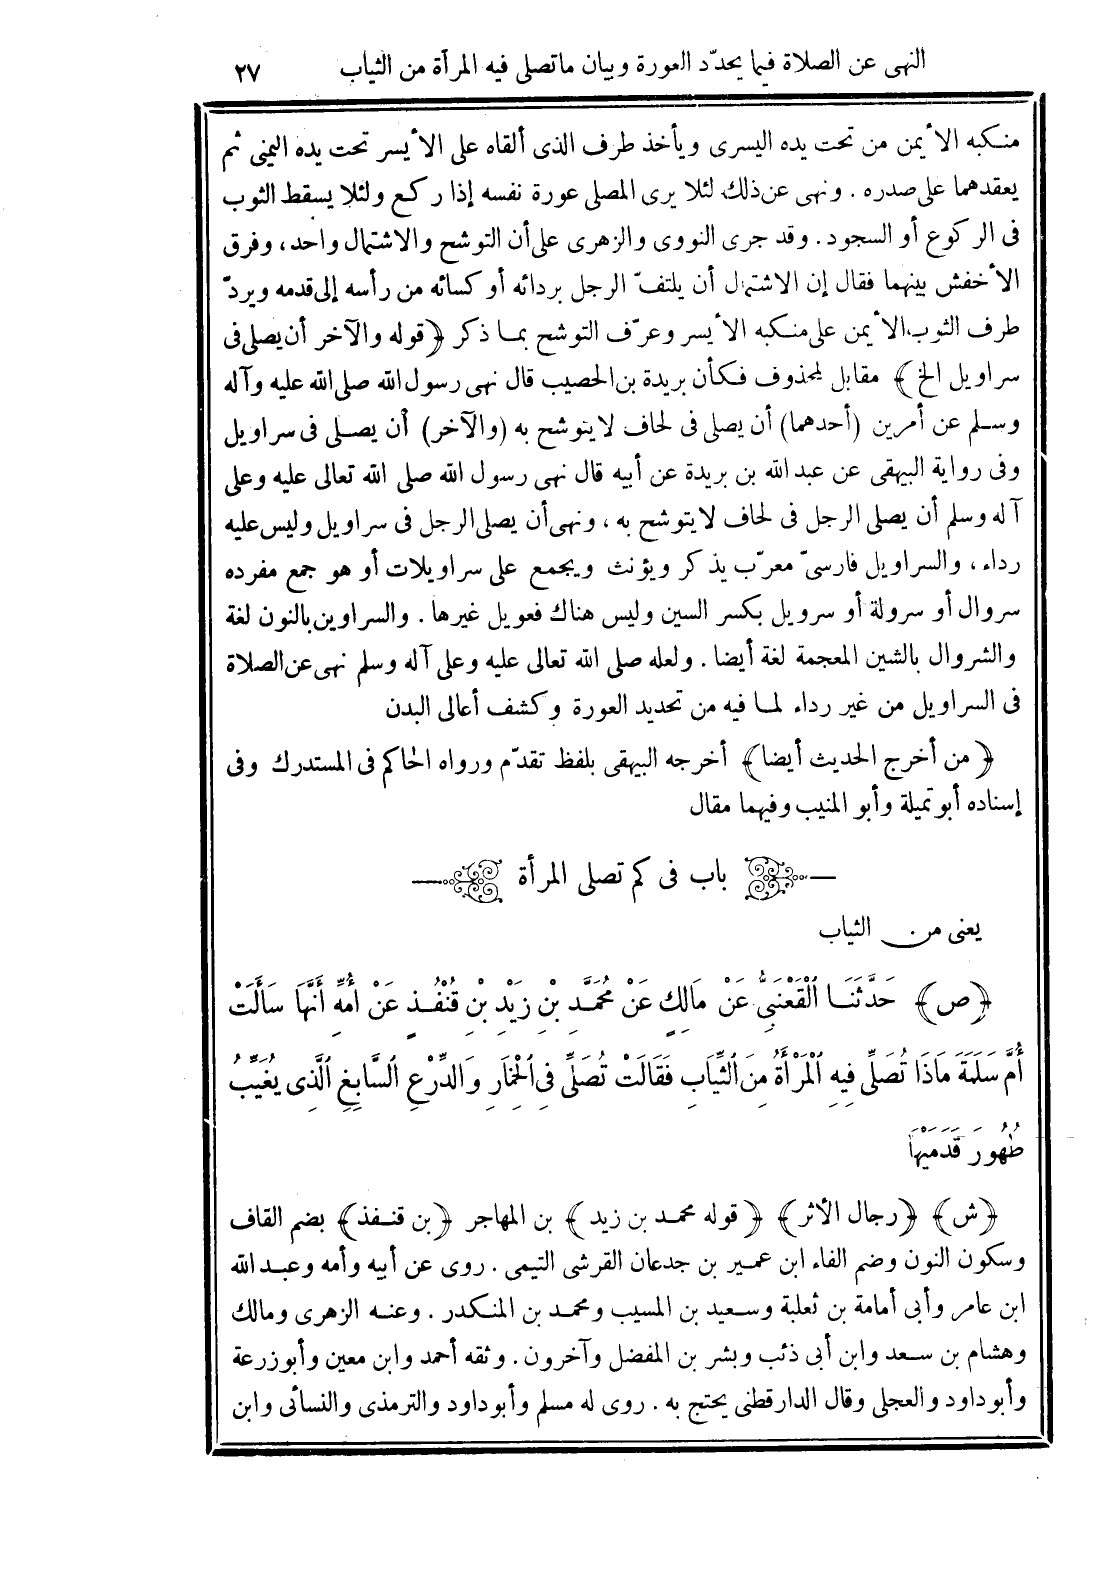 النهى عن الصلاة فيما يحدّد العورة وبيان ماتصلى فيه المرأة من الثياب ٢٧
منكبه الأيمن من تحت يده اليسرى ويأخذ طرف الذى ألقاه على الأيسر تحت يده اليمنى ثم
يعقدهما على صدره . ونهى عن ذلك لئلا يرى المصلى عورة نفسه إذا ركع ولئلا يسقط الثوب
فى الركوع أو السجود . وقد جرى النووى والزهرى على أن التوشح والاشتمال واحد، وفرق
الأخفش بينهما فقال إن الاشتمال أن يلتفّ الرجل بردائه أو كسائه من رأسه إلى قدمه ويردّ
طرف الثوب الأيمن على منكبه الأيسر وعرّف التوشح بما ذكر ﴿قوله والآخر أن يصلى فى
سراويل الخ﴾ مقابل لمحذوف فكأن بريدة بن الحصيب قال نهى رسول الله صلى الله عليه وآله
وسلم عن أمرين (أحدهما) أن يصلى فى لحاف لا يتوشح به (والآخر) أن يصلى فى سراويل
وفى رواية البيهقى عن عبد الله بن بريدة عن أبيه قال نهى رسول الله صلى الله تعالى عليه وعلى
آله وسلم أن يصلى الرجل فى لحاف لا يتوشح به ، ونهى أن يصلى الرجل فى سراويل وليس عليه
رداء ، والسراويل فارسىّ معرّب يذكر ويؤنث ويجمع على سراويلات أو هو جمع مفرده
سروال أو سرولة أو سرويل بكسر السين وليس هناك فعويل غيرها . والسراوين بالنون لغة
والشروال بالشين المعجمة لغة أيضا . ولعله صلى الله تعالى عليه وعلى آله وسلم نهى عن الصلاة
فى السراويل من غير رداء لما فيه من تحديد العورة وكشف أعالى البدن
﴿من أخرج الحديث أيضا﴾ أخرجه البيهقى بلفظ تقدّم ورواه الحاكم فى المستدرك وفى
إسناده أبو تميلة وأبو المنيب وفيهما مقال
باب فى كم تصلى المرأة
يعنى من الثياب
﴿ص﴾ حَدَّثَنَا ٱلْقَعْنَبِىُّ عَنْ مَالِكٍ عَنْ مُحَمَّدِ بْنِ زَيْدِ بْنِ قُنْفُذٍ عَنْ أُمِّهِ أَنَّهَا سَأَلَتْ
أُمَّ سَلَمَةَ مَاذَا تُصَلِّى فِيهِ ٱلْمَرْأَةُ مِنَ ٱلثِّيَابِ فَقَالَتْ تُصَلِّى فِى ٱلْخِمَارِ وَٱلدِّرْعِ ٱلسَّابِغِ ٱلَّذِى يُغَيِّبُ
ظُهُورَ قَدَمَيْهَا
﴿ش﴾ ﴿رجال الأثر﴾ ﴿قوله محمد بن زيد﴾ بن المهاجر ﴿بن قنفذ﴾ بضم القاف
وسكون النون وضم الفاء ابن عمير بن جدعان القرشى التيمى . روى عن أبيه وأمه وعبد الله
ابن عامر وأبى أمامة بن ثعلبة وسعيد بن المسيب ومحمد بن المنكدر . وعنه الزهرى ومالك
وهشام بن سعد وابن أبى ذئب وبشر بن المفضل وآخرون . وثقه أحمد وابن معين وأبو زرعة
وأبو داود والعجلى وقال الدارقطنى يحتج به . روى له مسلم وأبو داود والترمذى والنسائى وابن